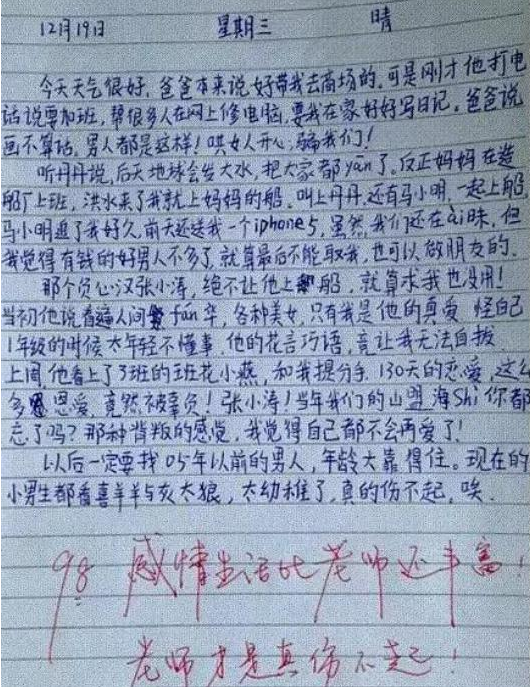 12月19日 星期三 晴
今天天气很好,爸爸本来说好带我去商场的,可是刚才他打电
话说要加班,帮很多人在网上修电脑,要我在家好好写日记。爸爸说
画不算话,男人都是这样!哄女人开心,骗我们!
听丹丹说,后天地球会发大水,把大家都yān了。反正妈妈在造
船厂上班,洪水来了我就上妈妈的船。叫上丹丹,还有马小明,一起上船
马小明追了我好久,前天还送我一个iphone5,虽然我们还在ài昧,但
我觉得有钱的好男人不多了,就算最后不能取我,也可以做朋友的。
那个负心汉张小涛,绝不让他上船,就算求我也没用!
当初他说看遍人间fán华,各种美女,只有我是他的真爱 怪自己
1年级的时候太年轻不懂事,他的花言巧语,竟让我无法自拔
上周,他看上了3班的班花小燕,和我提分手,130天的恋爱,这么
多恩爱,竟然被辜负!张小涛!当年我们的山盟海Shi你都
忘了吗?那种背叛的感觉,我觉得自己都不会再爱了!
以后一定要找05年以前的男人,年龄大靠得住。现在的
小男生都看喜羊羊与灰太狼,太幼稚了,真的伤不起,唉.
98 感情生活比老师还丰富!
老师才是真伤不起!